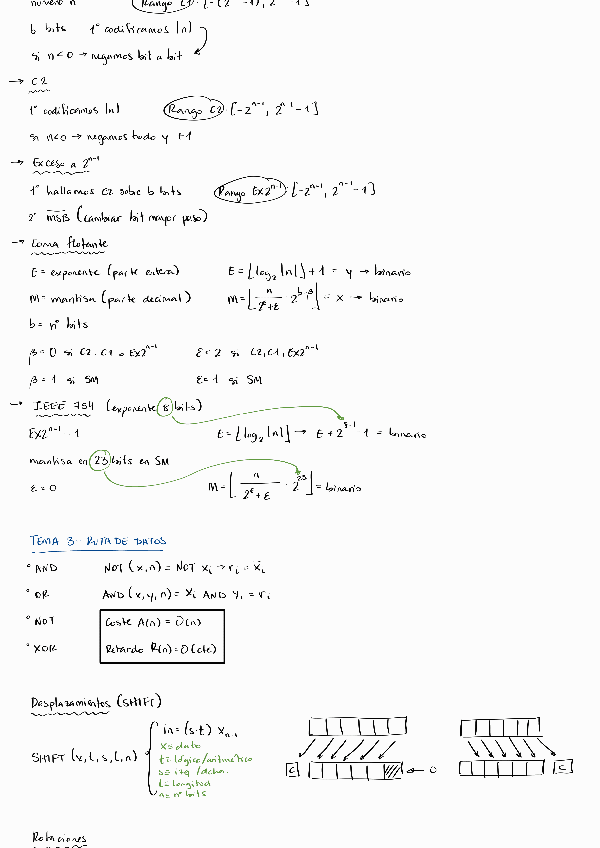 b bits 1º codificamos |n|
si n<0 → negamos bit a bit
→ C2
1º codificamos |n| Rango C2: [-2ⁿ⁻¹, 2ⁿ⁻¹-1]
si n<0 → negamos todo y +1
→ Exceso a 2ⁿ⁻¹
1º hallamos C2 sobre b bits Rango EX2ⁿ⁻¹: [-2ⁿ⁻¹, 2ⁿ⁻¹-1]
2º MSB (cambiar bit mayor peso)
→ Coma flotante
E = exponente (parte entera) E = ⌊log₂|n|⌋ + 1 = y → binario
M = mantisa (parte decimal) M = ⌊n / 2^E+ε · 2^b-β⌋ = x → binario
b = nº bits
β = 0 si C2, C1 o EX2ⁿ⁻¹ ε = 2 si C2, C1, EX2ⁿ⁻¹
β = 1 si SM ε = 1 si SM
→ IEEE 754 (exponente 8 bits)
EX2ⁿ⁻¹ - 1 E = ⌊log₂|n|⌋ → E + 2⁸⁻¹ - 1 = binario
mantisa en 23 bits en SM
ε = 0 M = ⌊n / 2^E+ε · 2²³⌋ = binario
TEMA 3 - RUTA DE DATOS
° AND NOT (x,n) = NOT xᵢ → rᵢ = x̄ᵢ
° OR AND (x,y,n) = xᵢ AND yᵢ = rᵢ
° NOT Coste A(n) = O(n)
° XOR Retardo R(n) = O(cte)
Desplazamientos (SHIFT)
SHIFT (x,t,s,l,n)
in = (s·t) xₙ₋₁
x = dato
t = lógico/aritmético
s = izq/dcha.
l = longitud
n = nº bits
C ← 0 C
Rotaciones